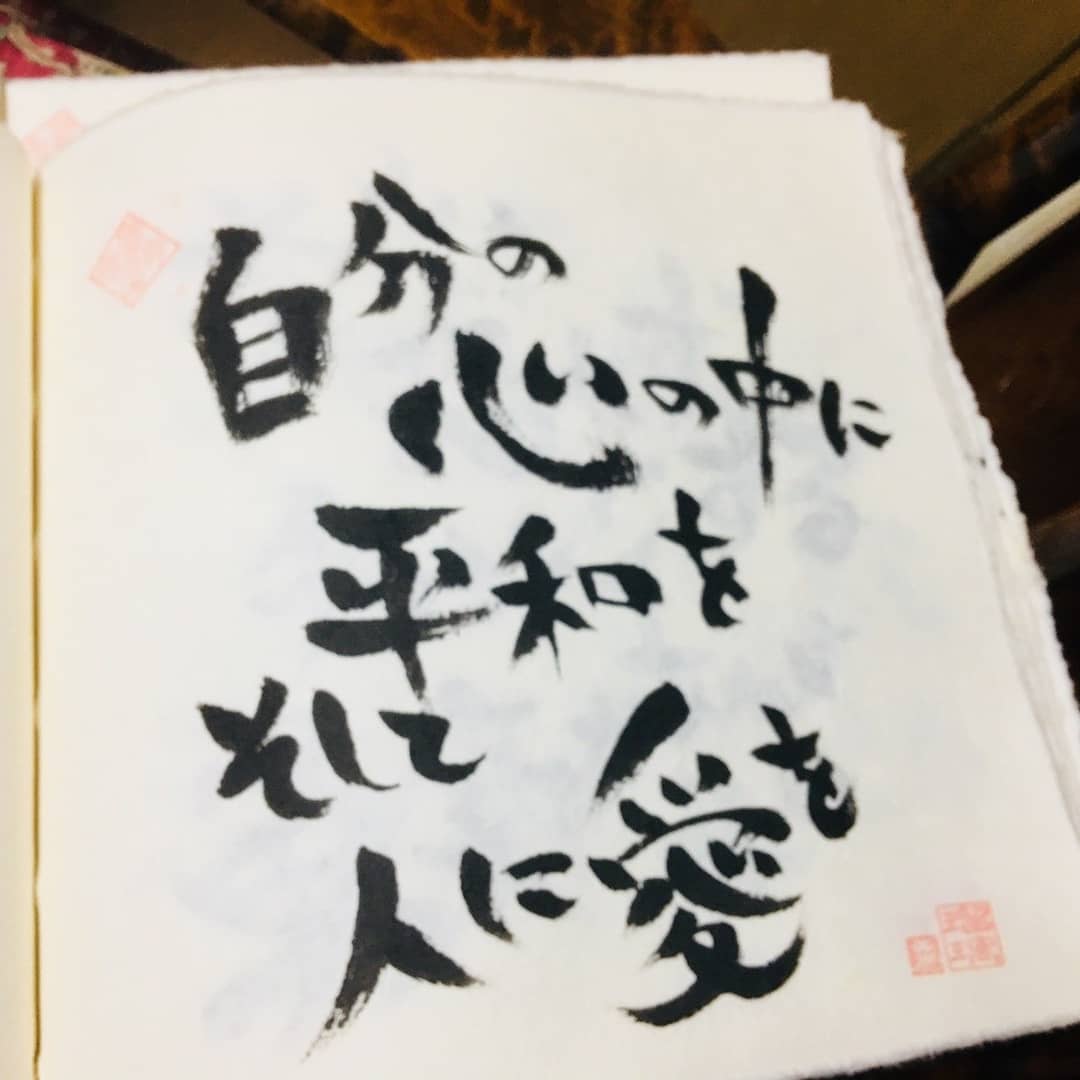 自分の
心の中に
平和を
そして
人に愛を